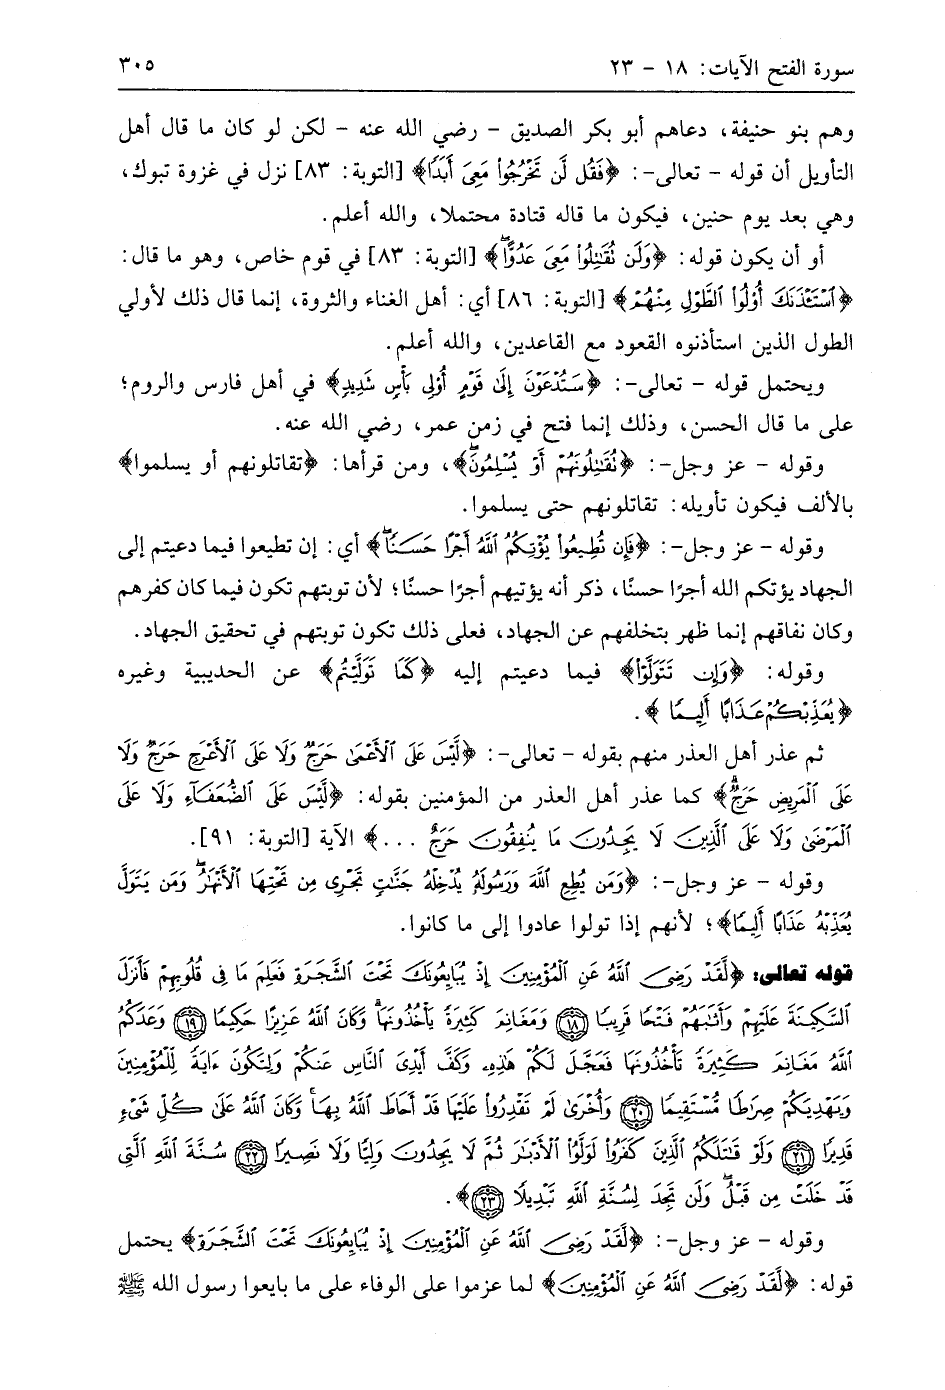 سورة الفتح الآيات: ١٨ - ٢٣ ٣٠٥
وهم بنو حنيفة، دعاهم أبو بكر الصديق - رضي الله عنه - لكن لو كان ما قال أهل
التأويل أن قوله - تعالى-: ﴿فَقُل لَّن تَخْرُجُوا۟ مَعِىَ أَبَدًا﴾ [التوبة: ٨٣] نزل في غزوة تبوك،
وهي بعد يوم حنين، فيكون ما قاله قتادة محتملا، والله أعلم.
أو أن يكون قوله: ﴿وَلَن تُقَٰتِلُوا۟ مَعِىَ عَدُوًّا﴾ [التوبة: ٨٣] في قوم خاص، وهو ما قال:
﴿ٱسْتَـْٔذَنَكَ أُو۟لُوا۟ ٱلطَّوْلِ مِنْهُمْ﴾ [التوبة: ٨٦] أي: أهل الغناء والثروة، إنما قال ذلك لأولي
الطول الذين استأذنوه القعود مع القاعدين، والله أعلم.
ويحتمل قوله - تعالى-: ﴿سَتُدْعَوْنَ إِلَىٰ قَوْمٍ أُو۟لِى بَأْسٍ شَدِيدٍ﴾ في أهل فارس والروم؛
على ما قال الحسن، وذلك إنما فتح في زمن عمر، رضي الله عنه.
وقوله - عز وجل-: ﴿تُقَٰتِلُونَهُمْ أَوْ يُسْلِمُونَ﴾، ومن قرأها: ﴿تقاتلونهم أو يسلموا﴾
بالألف فيكون تأويله: تقاتلونهم حتى يسلموا.
وقوله - عز وجل-: ﴿فَإِن تُطِيعُوا۟ يُؤْتِكُمُ ٱللَّهُ أَجْرًا حَسَنًا﴾ أي: إن تطيعوا فيما دعيتم إلى
الجهاد يؤتكم الله أجرًا حسنًا، ذكر أنه يؤتيهم أجرًا حسنًا؛ لأن توبتهم تكون فيما كان كفرهم
وكان نفاقهم إنما ظهر بتخلفهم عن الجهاد، فعلى ذلك تكون توبتهم في تحقيق الجهاد.
وقوله: ﴿وَإِن تَتَوَلَّوْا۟﴾ فيما دعيتم إليه ﴿كَمَا تَوَلَّيْتُم﴾ عن الحديبية وغيره
﴿يُعَذِّبْكُمْ عَذَابًا أَلِيمًا﴾.
ثم عذر أهل العذر منهم بقوله - تعالى-: ﴿لَّيْسَ عَلَى ٱلْأَعْمَىٰ حَرَجٌ وَلَا عَلَى ٱلْأَعْرَجِ حَرَجٌ وَلَا
عَلَى ٱلْمَرِيضِ حَرَجٌ﴾ كما عذر أهل العذر من المؤمنين بقوله: ﴿لَّيْسَ عَلَى ٱلضُّعَفَآءِ وَلَا عَلَى
ٱلْمَرْضَىٰ وَلَا عَلَى ٱلَّذِينَ لَا يَجِدُونَ مَا يُنفِقُونَ حَرَجٌ ...﴾ الآية [التوبة: ٩١].
وقوله - عز وجل-: ﴿وَمَن يُطِعِ ٱللَّهَ وَرَسُولَهُۥ يُدْخِلْهُ جَنَّٰتٍ تَجْرِى مِن تَحْتِهَا ٱلْأَنْهَٰرُ وَمَن يَتَوَلَّ
يُعَذِّبْهُ عَذَابًا أَلِيمًا﴾؛ لأنهم إذا تولوا عادوا إلى ما كانوا.
قوله تعالى: ﴿لَّقَدْ رَضِىَ ٱللَّهُ عَنِ ٱلْمُؤْمِنِينَ إِذْ يُبَايِعُونَكَ تَحْتَ ٱلشَّجَرَةِ فَعَلِمَ مَا فِى قُلُوبِهِمْ فَأَنزَلَ
ٱلسَّكِينَةَ عَلَيْهِمْ وَأَثَٰبَهُمْ فَتْحًا قَرِيبًا ١٨ وَمَغَانِمَ كَثِيرَةً يَأْخُذُونَهَا وَكَانَ ٱللَّهُ عَزِيزًا حَكِيمًا ١٩ وَعَدَكُمُ
ٱللَّهُ مَغَانِمَ كَثِيرَةً تَأْخُذُونَهَا فَعَجَّلَ لَكُمْ هَٰذِهِۦ وَكَفَّ أَيْدِىَ ٱلنَّاسِ عَنكُمْ وَلِتَكُونَ ءَايَةً لِّلْمُؤْمِنِينَ
وَيَهْدِيَكُمْ صِرَٰطًا مُّسْتَقِيمًا ٢٠ وَأُخْرَىٰ لَمْ تَقْدِرُوا۟ عَلَيْهَا قَدْ أَحَاطَ ٱللَّهُ بِهَا وَكَانَ ٱللَّهُ عَلَىٰ كُلِّ شَىْءٍ
قَدِيرًا ٢١ وَلَوْ قَٰتَلَكُمُ ٱلَّذِينَ كَفَرُوا۟ لَوَلَّوُا۟ ٱلْأَدْبَٰرَ ثُمَّ لَا يَجِدُونَ وَلِيًّا وَلَا نَصِيرًا ٢٢ سُنَّةَ ٱللَّهِ ٱلَّتِى
قَدْ خَلَتْ مِن قَبْلُ وَلَن تَجِدَ لِسُنَّةِ ٱللَّهِ تَبْدِيلًا ٢٣﴾.
وقوله - عز وجل-: ﴿لَّقَدْ رَضِىَ ٱللَّهُ عَنِ ٱلْمُؤْمِنِينَ إِذْ يُبَايِعُونَكَ تَحْتَ ٱلشَّجَرَةِ﴾ يحتمل
قوله: ﴿لَّقَدْ رَضِىَ ٱللَّهُ عَنِ ٱلْمُؤْمِنِينَ﴾ لما عزموا على الوفاء على ما بايعوا رسول الله ﷺ